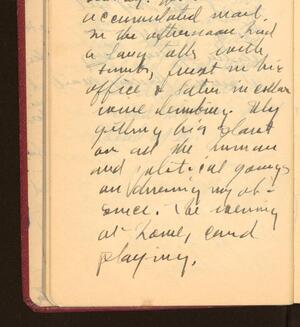 accumulated mail.
In the afternoon had
a long talk with
first in his
office & later in
some
getting his slant
on all the human
and political goings
on during my ab-
sence. The evening
at home, card
playing.